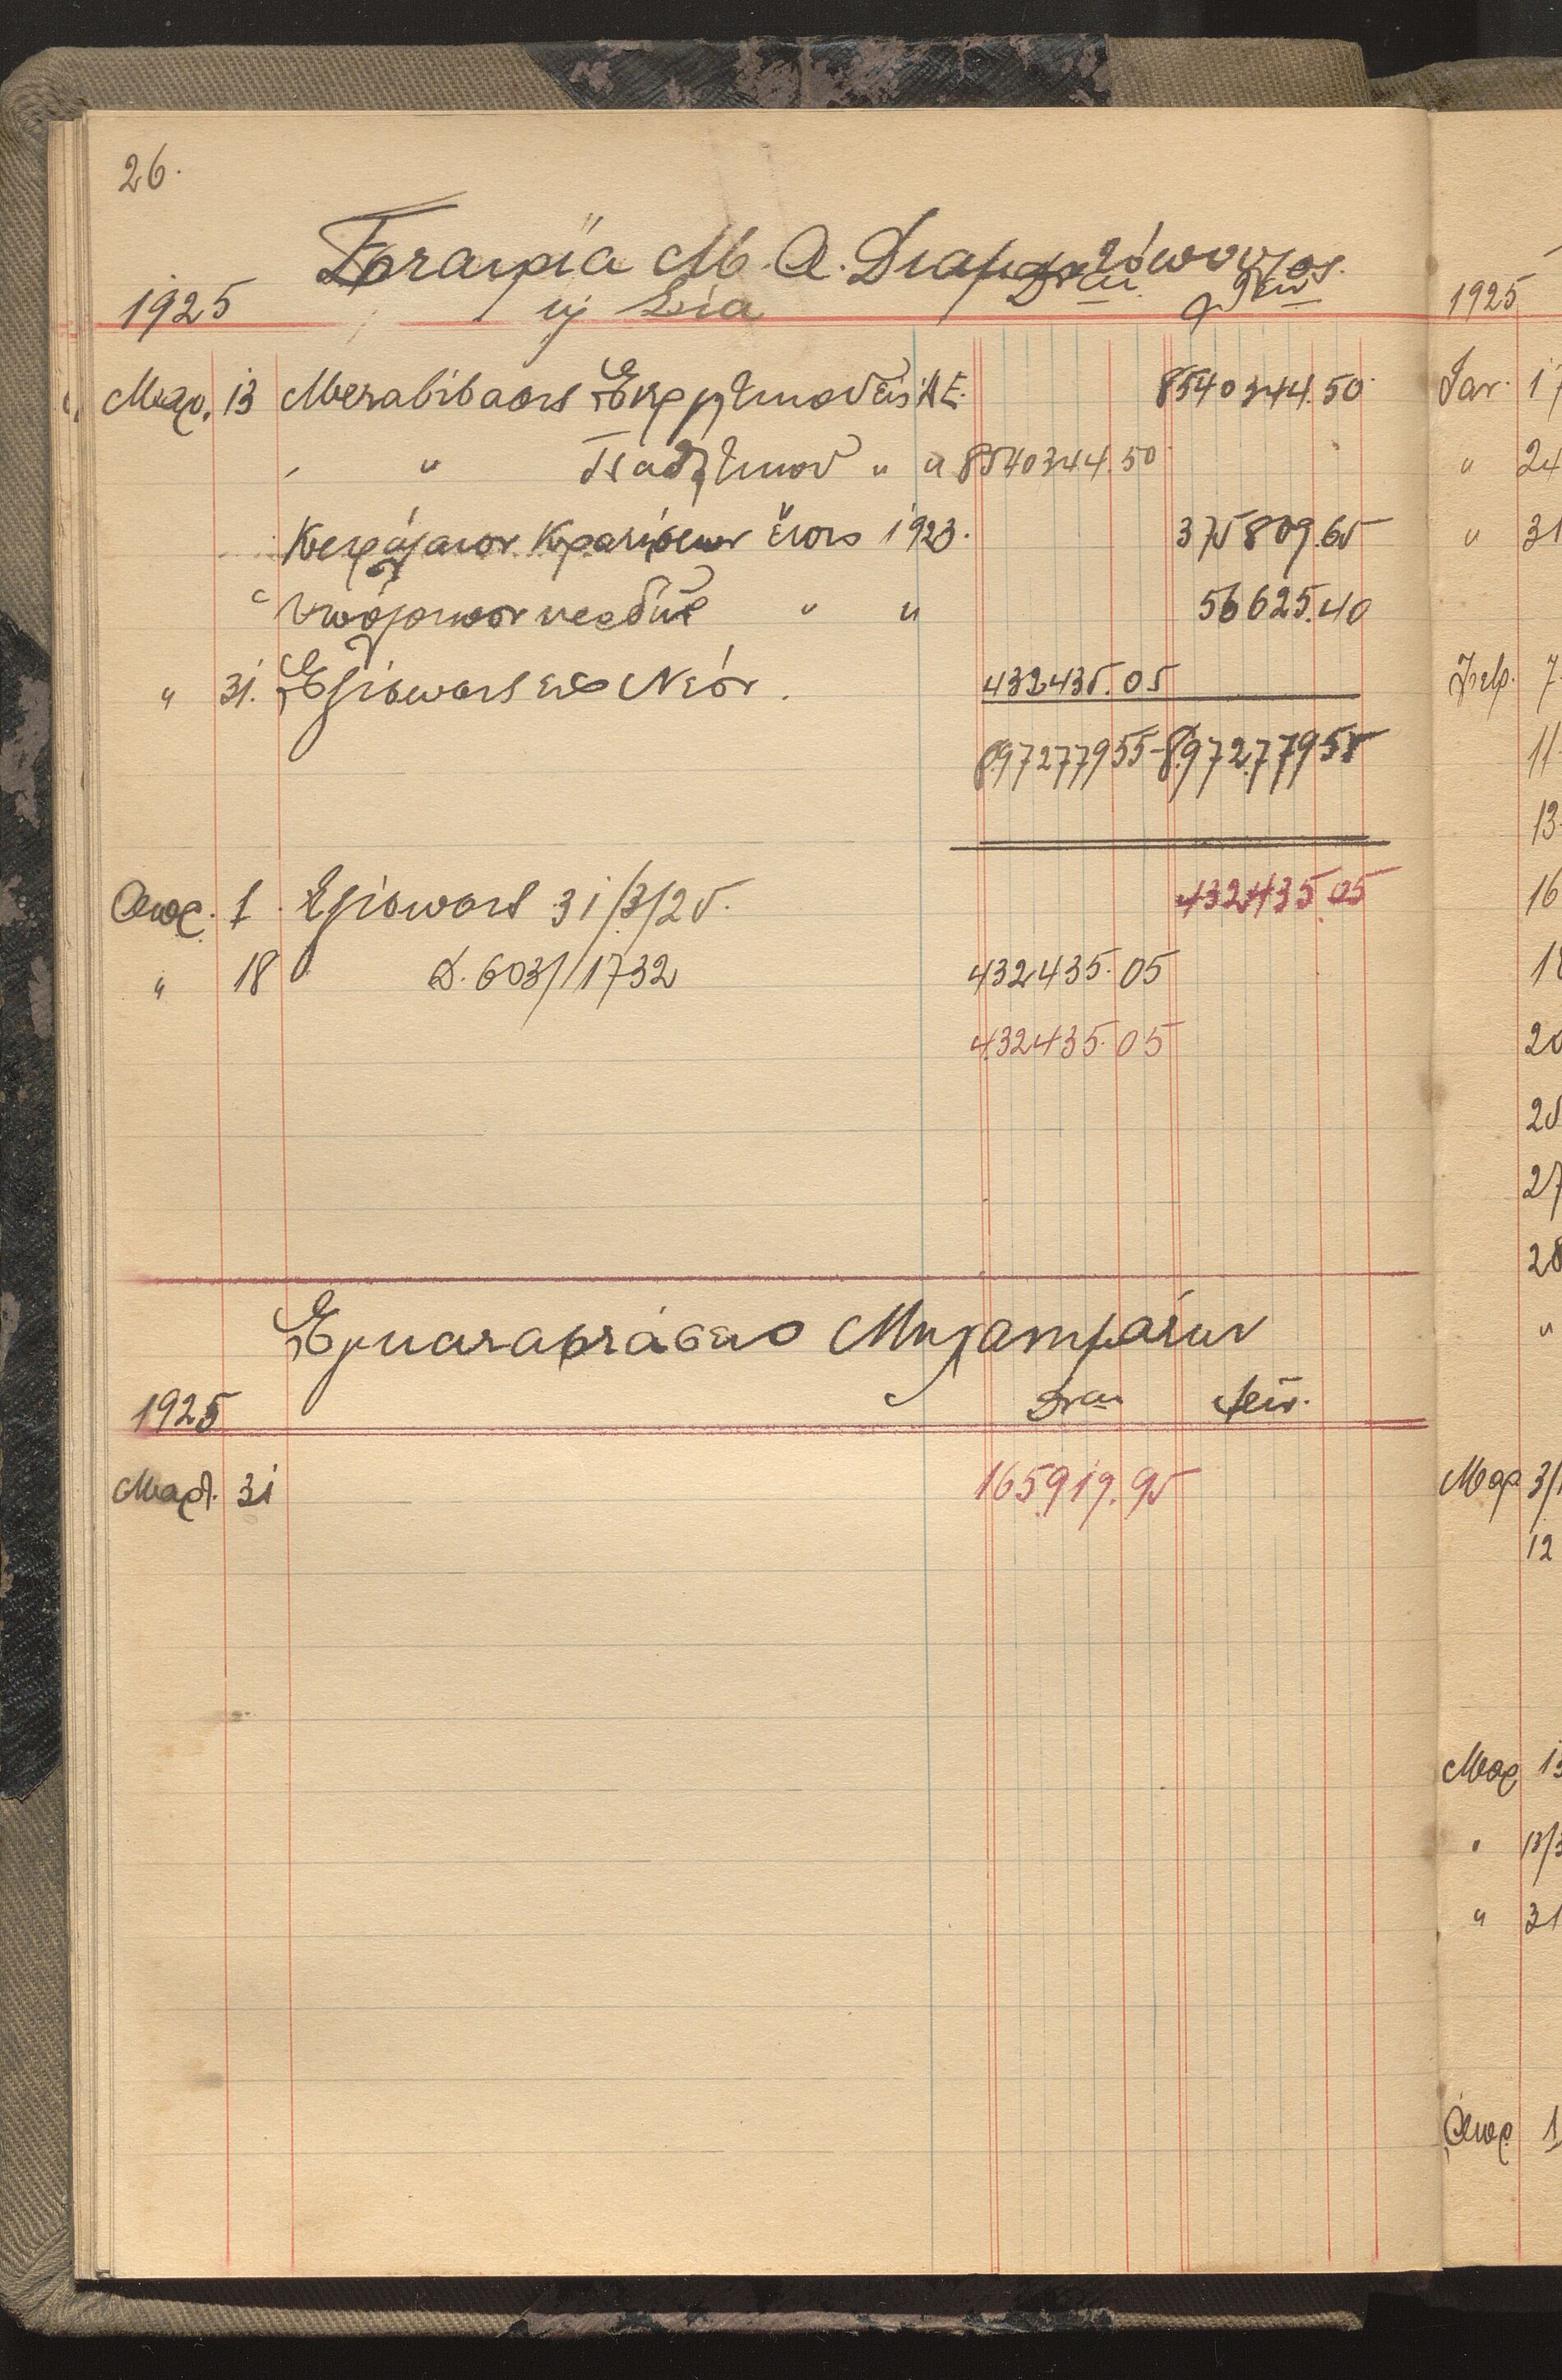 26.
Εταιρία Μ. Α. Διαμαντόπουλος
1925 & Σία Δναι Λειν
Μαρ. 13 Μεταβίβασις Ενεργητικού εις Α.Ε. 8540344.50
" Παθητικού " " 8540344.50
Κεφάλαιον Κρατήσεων έτους 1923. 375809.65
Υπόλοιπον κερδών " " 56625.40
" 31. Εξίσωσις εις Νέον. 432435.05
8,972779.55 8,972,779.55
Απρ. 1 Εξίσωσις 31/3/25. 432435.05
" 18 Δ. 603/1732 432435.05
432435.05
Εγκαταστάσεις Μηχανημάτων
1925 Δναι Λειν.
Μαρτ. 31 165,919.95
1925
Ιαν. 17
" 24
" 31
Φεβ. 7.
11.
13.
16
18
20
25
27
28
"
Μαρ 3/
12
Μαρ 13
" 13/3
" 31
Απρ 1